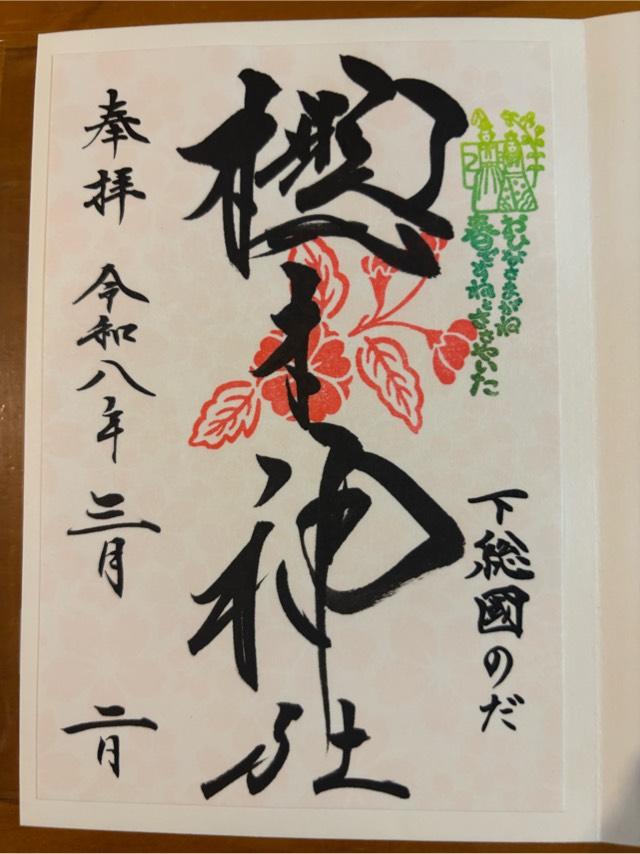 おひなさまがね
春ですねとささやいた
下総國のだ
櫻木神社
奉拝 令和八年 三月 二日